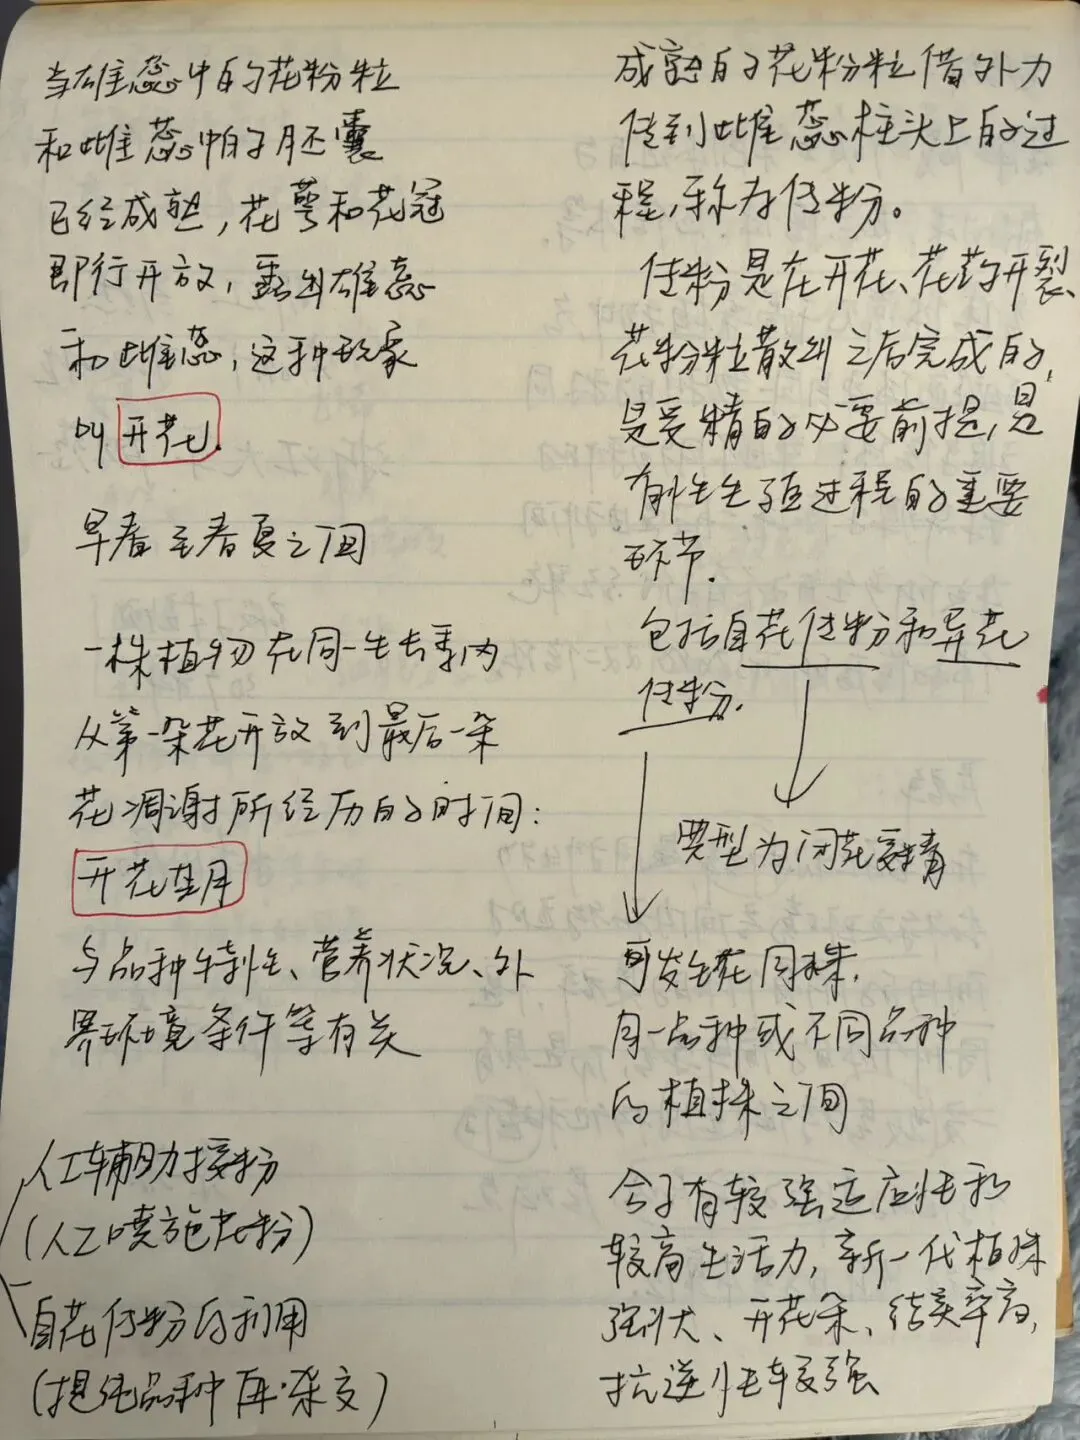 当雄蕊中的花粉粒
和雌蕊中的胚囊
已经成熟，花萼和花冠
即行开放，露出雄蕊
和雌蕊，这种现象
叫开花.
早春至春夏之间
一株植物在同一生长季内
从第一朵花开放到最后一朵
花凋谢所经历的时间：
开花期
与品种特性、营养状况、外
界环境条件等有关
人工辅助授粉
(人工喷施花粉)
自花传粉的利用
(提纯品种再杂交)
成熟的花粉粒借外力
传到雌蕊柱头上的过
程,称为传粉。
传粉是在开花、花药开裂
花粉粒散出之后完成的,
是受精的必要前提,是
有性生殖过程的重要
环节.
包括自花传粉和异花
传粉.
典型为闭花受精
可发生在同株,
同一品种或不同品种
的植株之间
合子有较强适应性和
较高生活力,新一代植株
强壮、开花多、结实率高,
抗逆性较强